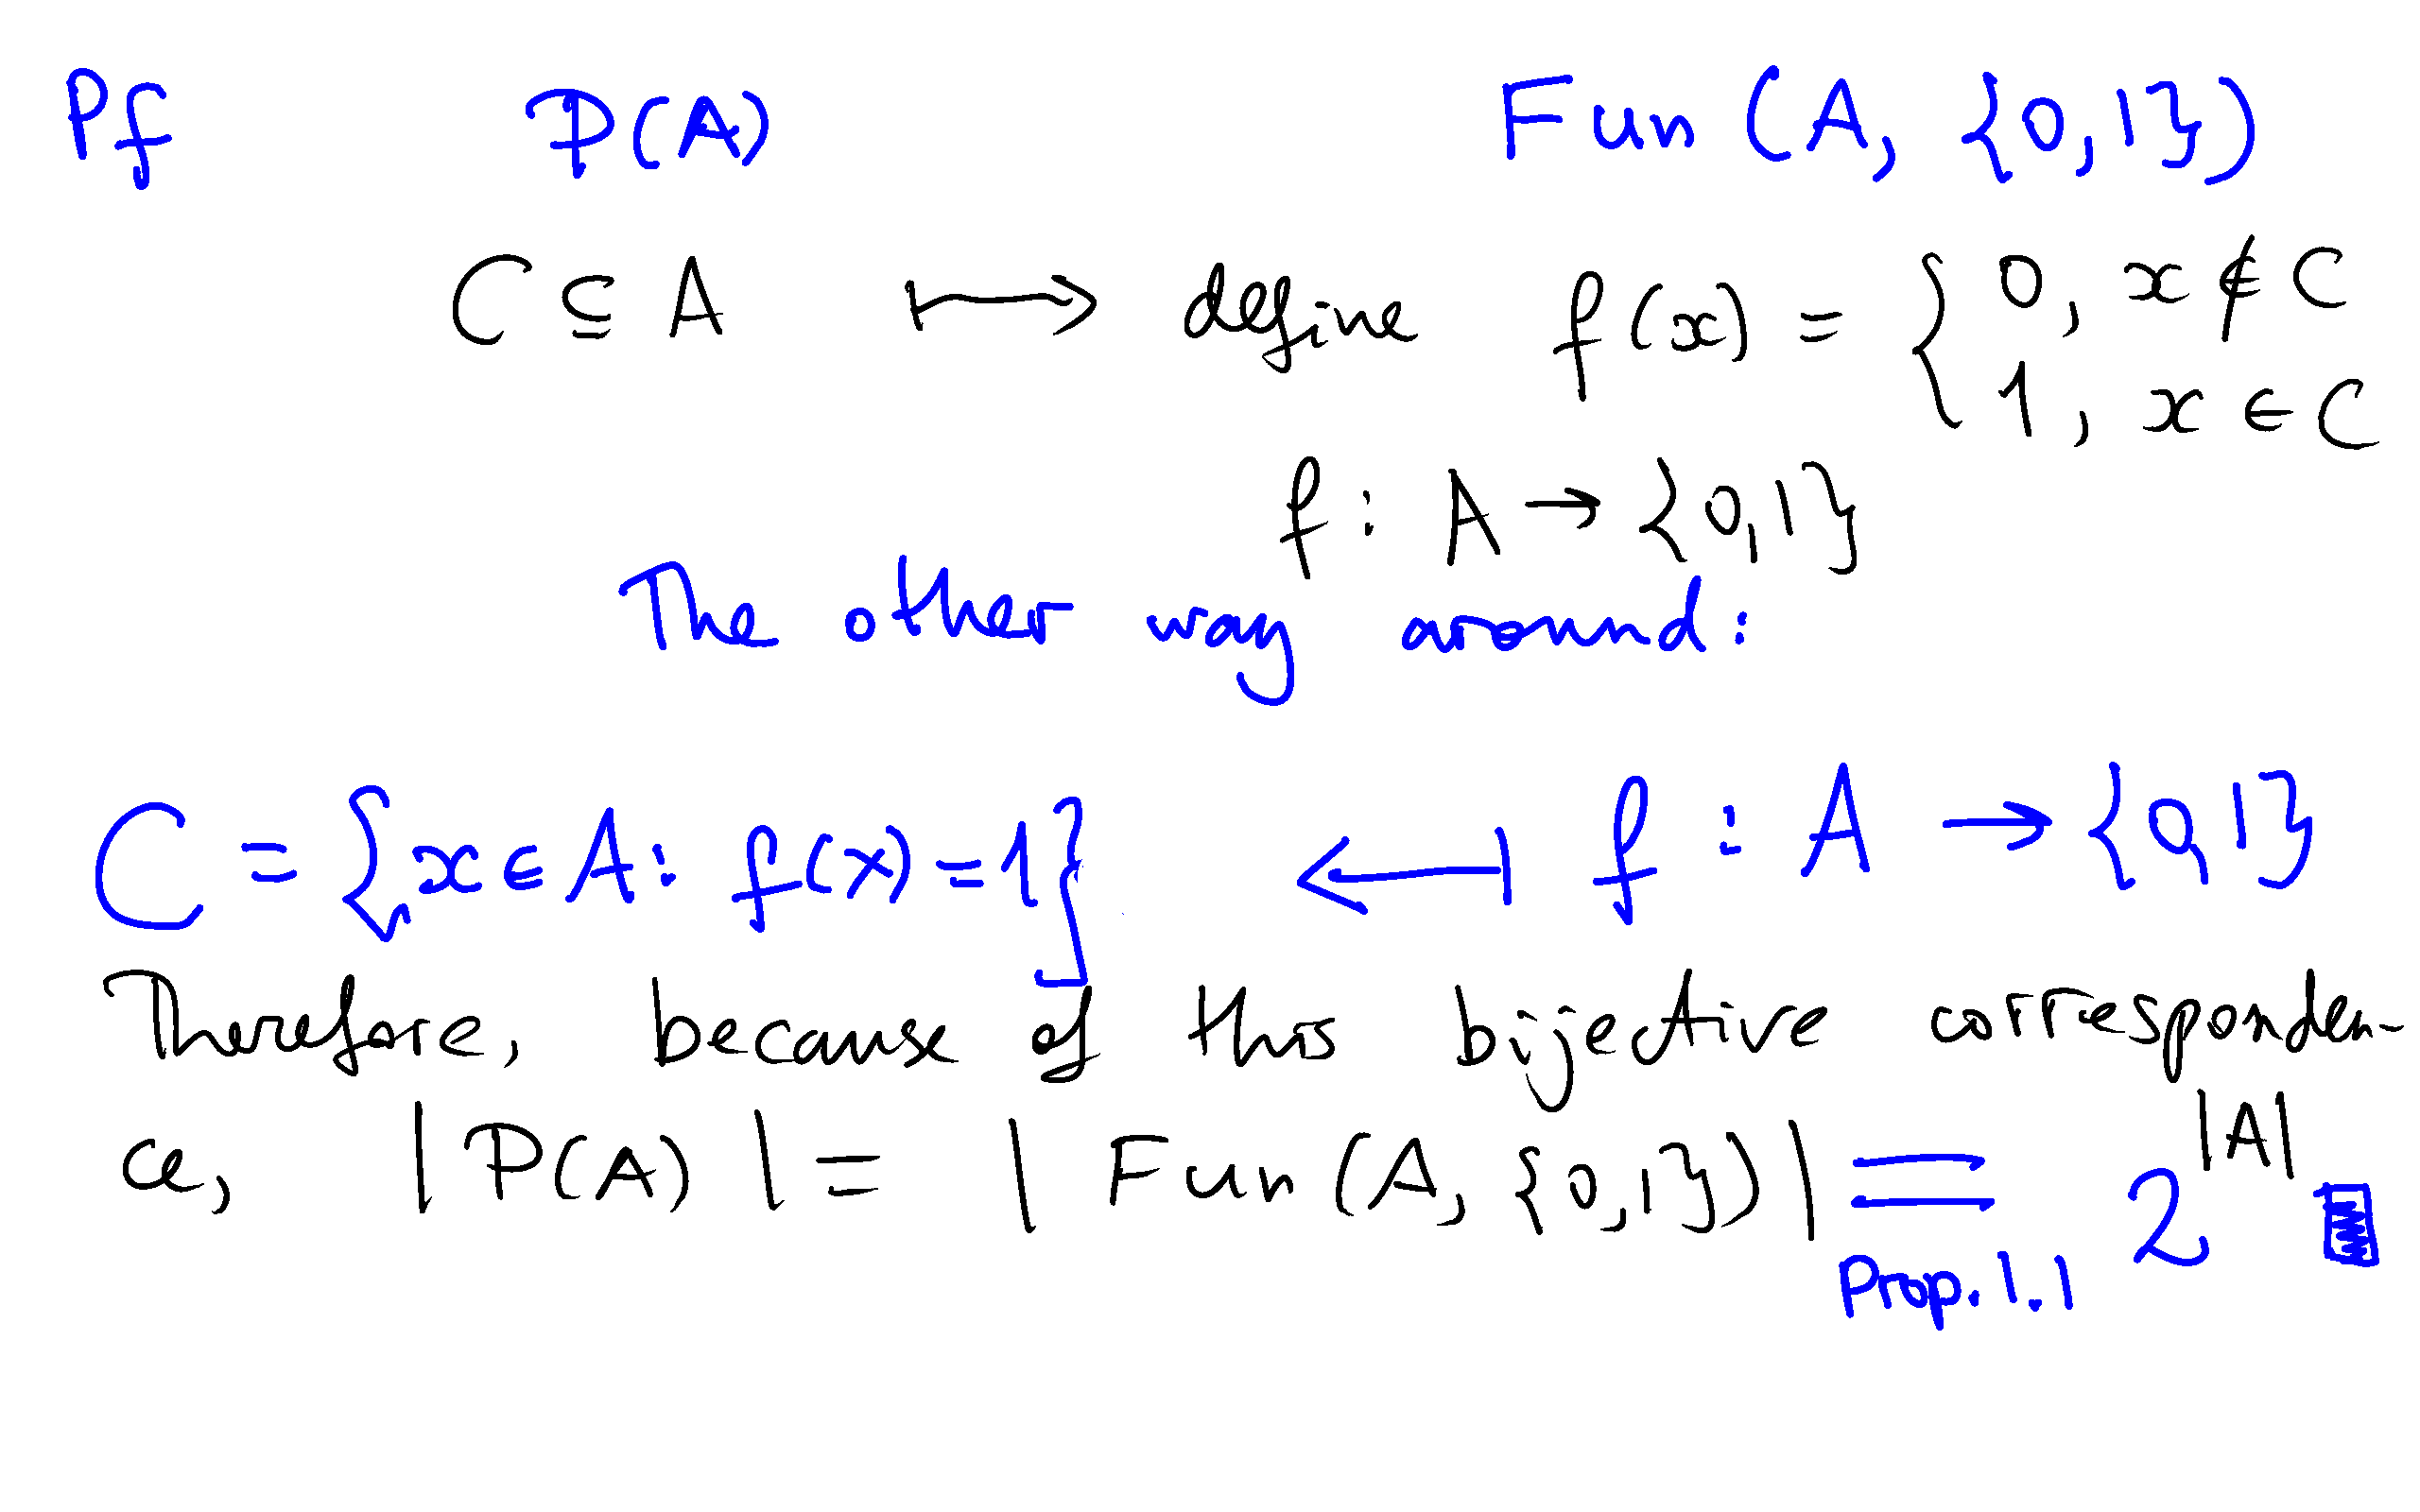 Pf P(A) Fun (A, {0,1})
C ⊆ A ⟼ define f(x) = { 0, x ∉ C
1, x ∈ C
f : A → {0,1}
The other way around:
C = {x ∈ A : f(x) = 1} ⟻ f : A → {0,1}
Therefore, because of this bijective corresponden-
ce, |P(A)| = |Fun (A, {0,1})| = 2^|A|
Prop. 1.1